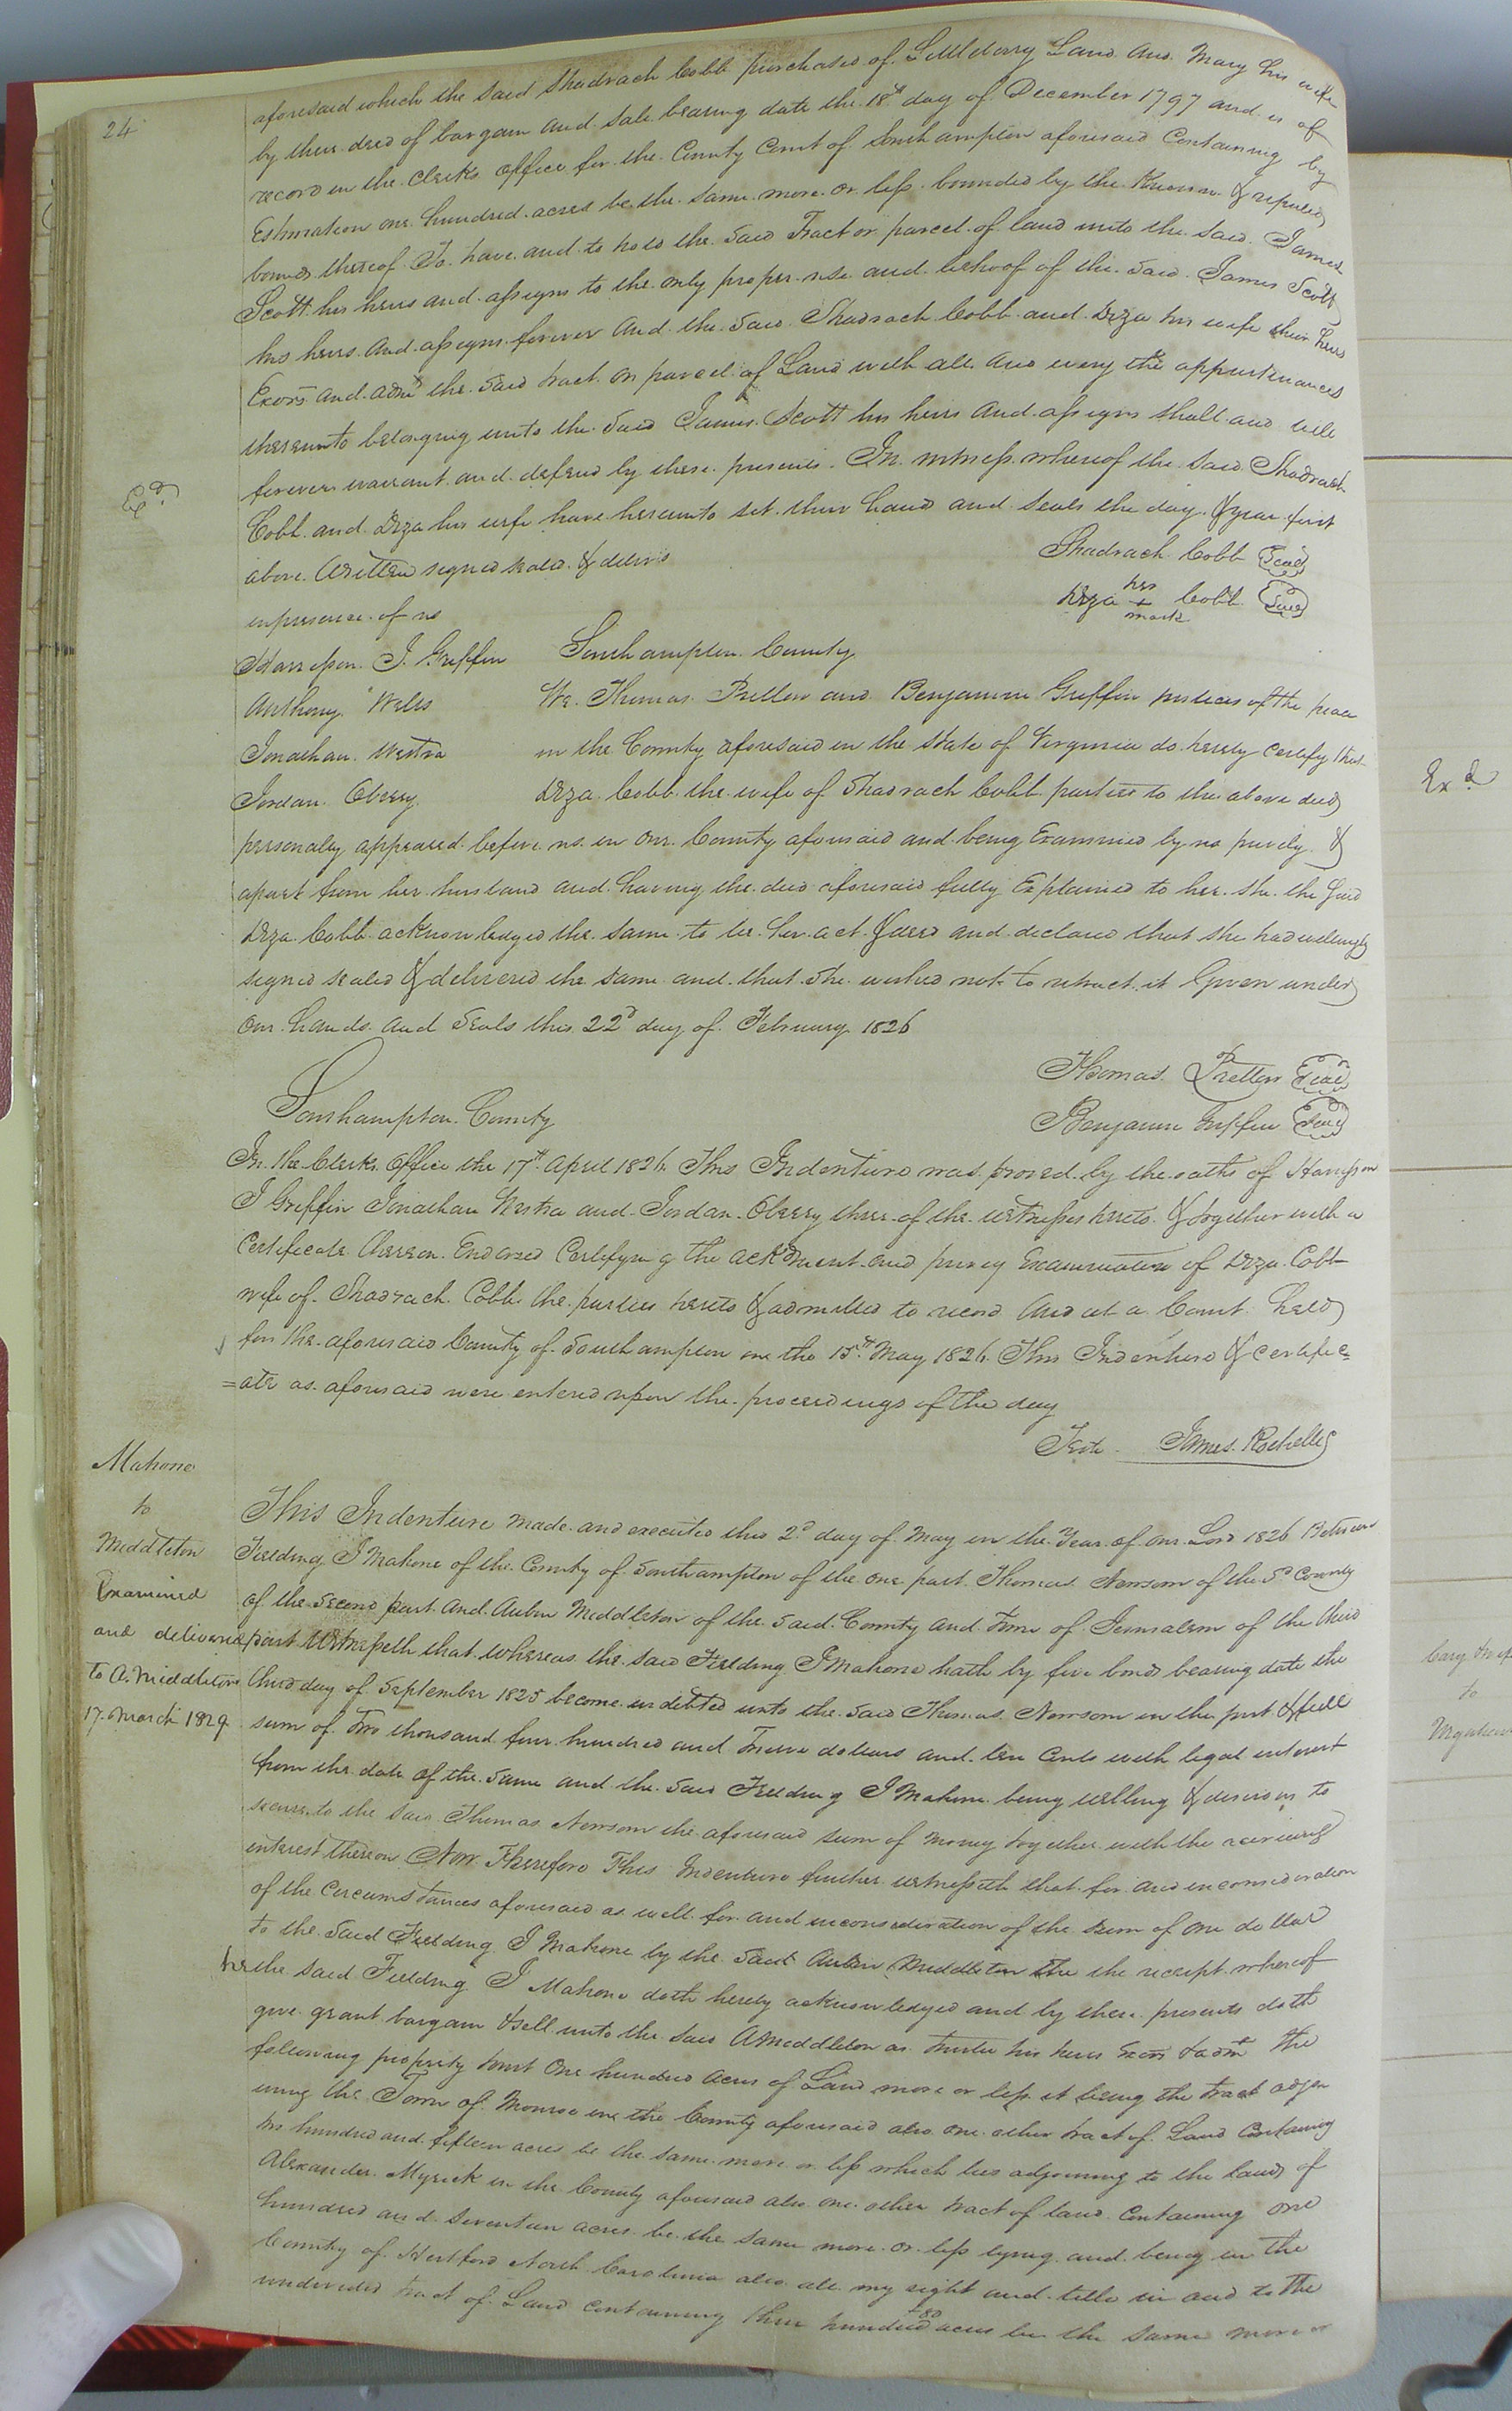 24
aforesaid which the said Shadrach Cobb purchased of Littleberry Land and Mary his wife
by their deed of bargain and sale bearing date the 18th day of December 1797 and is of
record in the Clerks Office for the County Court of Southampton aforesaid Containing by
Estimation one hundred acres be the same more or less bounded by the Known & reputed
bounds thereof To have and to hold the said Tract or parcel of land unto the said James
Scott his heirs and assigns to the only proper use and behoof of the said James Scott
his heirs and assigns forever And the said Shadrach Cobb and Liza his wife their heirs
Exors and adms the said tract or parcel of Land with all and every the appurtenances
thereunto belonging unto the said James Scott his heirs and assigns shall and will
forever warrant and defend by these presents. In witness whereof the said Shadrach
Exd
Cobb and Liza his wife have hereunto set their hands and seals the day & year first
above Written signed sealed & delivd
in presence of us
Shadrach Cobb Seal
her
Liza + Cobb Seal
mark
Harrison J. Griffin
Anthony Wells
Jonathan Westra
Jordan Oberry
Southampton County
We Thomas Pretlow and Benjamin Griffin Justices of the peace
in the County aforesaid in the State of Virginia do hereby certify that
Liza Cobb the wife of Shadrach Cobb parties to the above deed
personaley appeared before us in our County aforesaid and being Examined by us privily &
apart from her husband and having the deed aforesaid fully Explained to her she the said
Liza Cobb acknowledged the same to be her act & deed and declared that she had willingly
signed sealed & delivered the same and that she wished not to retract it Given under
our hands and seals this 22d day of February 1826
Thomas Pretlow Seal
Benjamin Griffin Seal
Southampton County
In the Clerks Office the 17th April 1826 This Indenture was proved by the oaths of Harrison
J Griffin Jonathan Westra and Jordan Oberry three of the witnesses hereto & together with a
Certificate thereon Endorsed Certifying the ackdment and privy Examination of Liza Cobb
wife of Shadrach Cobb the parties hereto & admitted to record And at a Court held
for the aforesaid County of Southampton on the 15th May 1826 This Indenture & certific=
=ate as aforesaid were entered upon the proceedings of the day
Teste James Rochelle
Mahone
to
Middleton
Examined
and delivered
to A. Middleton
17. March 1829
This Indenture made and executed this 2d day of May in the Year of our Lord 1826 Between
Fielding J Mahone of the County of Southampton of the one part Thomas Newsom of the Sd County
of the second part And Aubin Middleton of the said County and Town of Jerusalem of the third
part Witnesseth that whereas the said Fielding J Mahone hath by five bonds bearing date the
third day of September 1825 become indebted unto the said Thomas Newsom in the just & full
sum of Two thousand four hundred and Twelve dollars and ten Cents with legal interest
from the date of the same and the said Fielding J Mahone being willing & desirous to
secure to the said Thomas Newsom the aforesaid sum of money together with the accruing
interest thereon Now Therefore This Indenture further witnesseth that for and in consideration
of the Circumstances aforesaid as well for and in consideration of the sum of one dollar
to the said Fielding J Mahone by the said Aubin Middleton the the receipt whereof
he the said Fielding J Mahone doth hereby acknowledged and by these presents doth
give grant bargain & sell unto the said A Middleton as Trustee his heirs Exors & adm the
following property to wit One hundred acres of Land more or less it being the tract adjoin
ing the Town of Monroe in the County aforesaid also one other tract of Land Containing
two hundred and fifteen acres be the same more or less which lies adjoining to the lands of
Alexander Myrick in the County aforesaid also one other tract of land Containing one
hundred and seventeen acres be the same more or less lying and being in the
County of Hertford North Carolina also all my right and title in and to the
undivided tract of Land containing three hundred +80 acres be the same more or
Exd
Cary
to